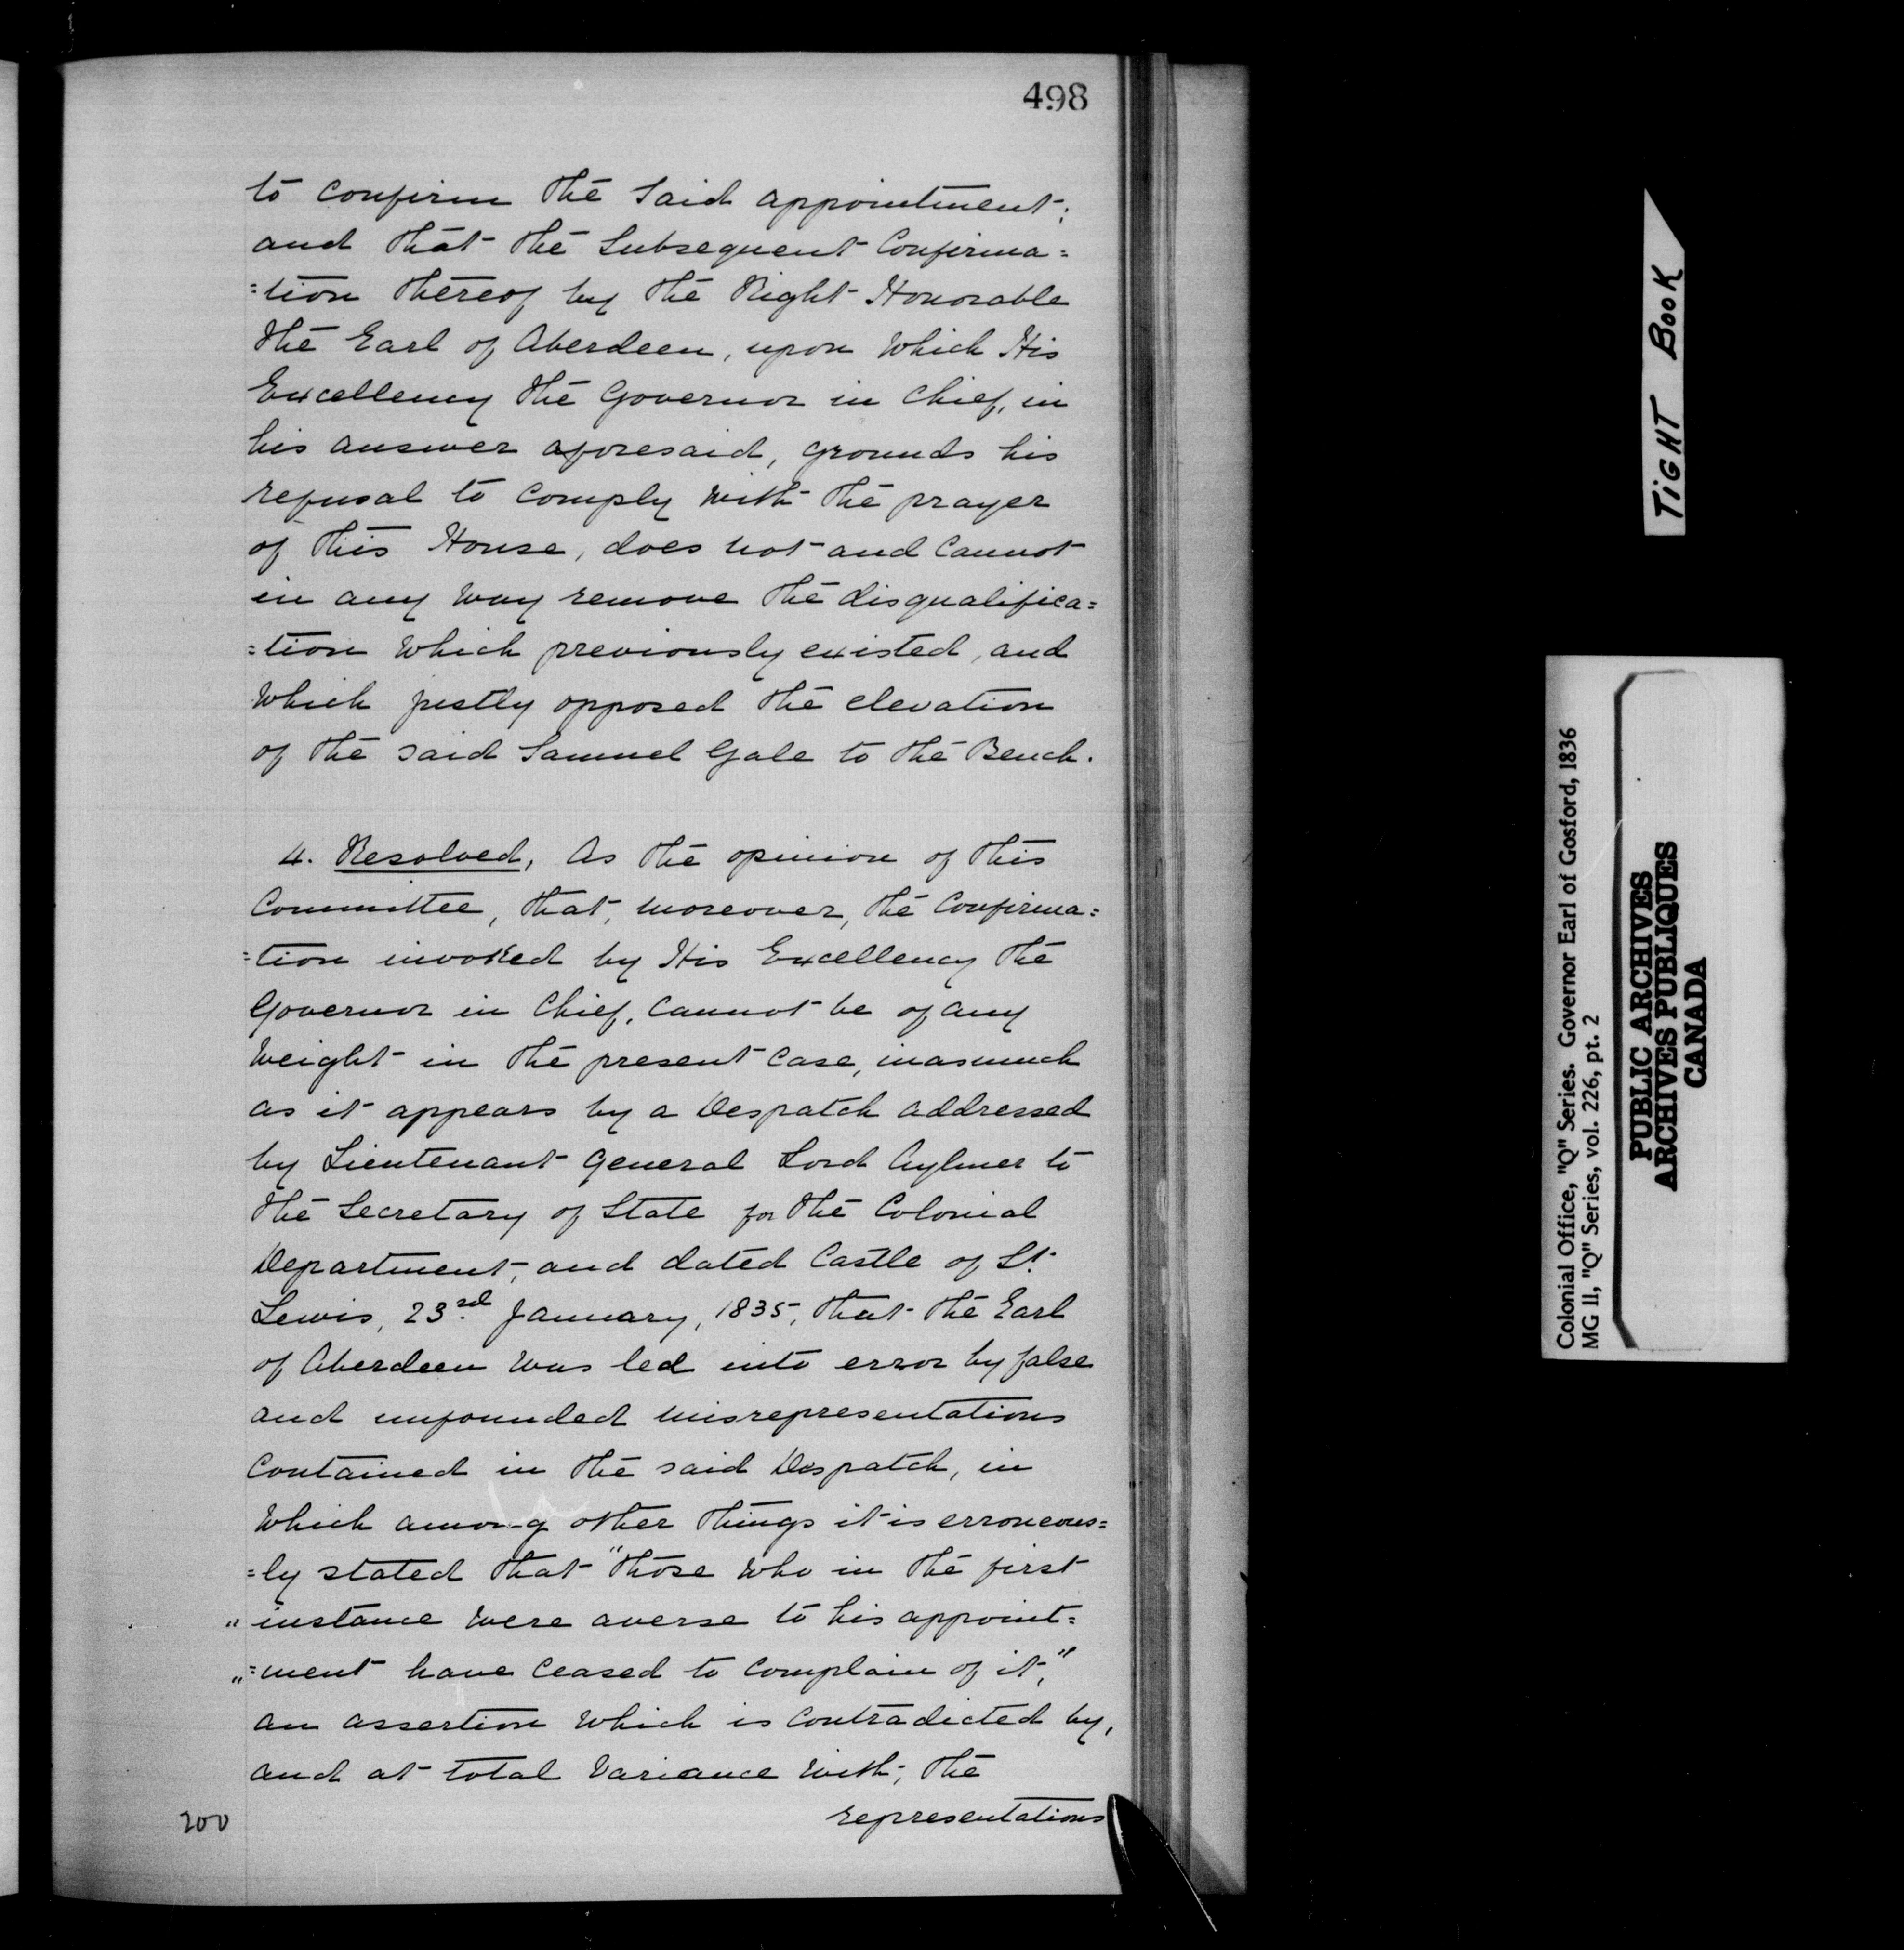 498
to confirm the said appointment;
and that the subsequent Confirma=
=tion thereof by the Right Honorable
the Earl of Aberdeen, upon which His
Excellency the Governor in Chief, in
his answer aforesaid, grounds his
refusal to comply with the prayer
of this House, does not and cannot
in any way remove the disqualifica=
=tion which previously existed, and
which justly opposed the elevation
of the said Samuel Gale to the Bench.
4. Resolved, As the opinion of this
Committee, that, moreover, the Confirma=
=tion invoked by His Excellency the
Governor in Chief, cannot be of any
weight in the present case, inasmuch
as it appears by a Despatch addressed
by Lieutenant General Lord Aylmer to
the Secretary of State for the Colonial
Department, and dated Castle of St.
Lewis, 23rd January, 1835, that the Earl
of Aberdeen was led into error by false
and unfounded misrepresentations
contained in the said Despatch, in
which among other things it is erroneous=
=ly stated that "those who in the first
"instance were averse to his appoint=
"=ment have ceased to complain of it,"
an assertion which is contradicted by,
and at total variance with, the
representations
200
TIGHT BOOK
Colonial Office, "Q" Series. Governor Earl of Gosford, 1836
MG 11, "Q" Series, vol. 226, pt. 2
PUBLIC ARCHIVES
ARCHIVES PUBLIQUES
CANADA